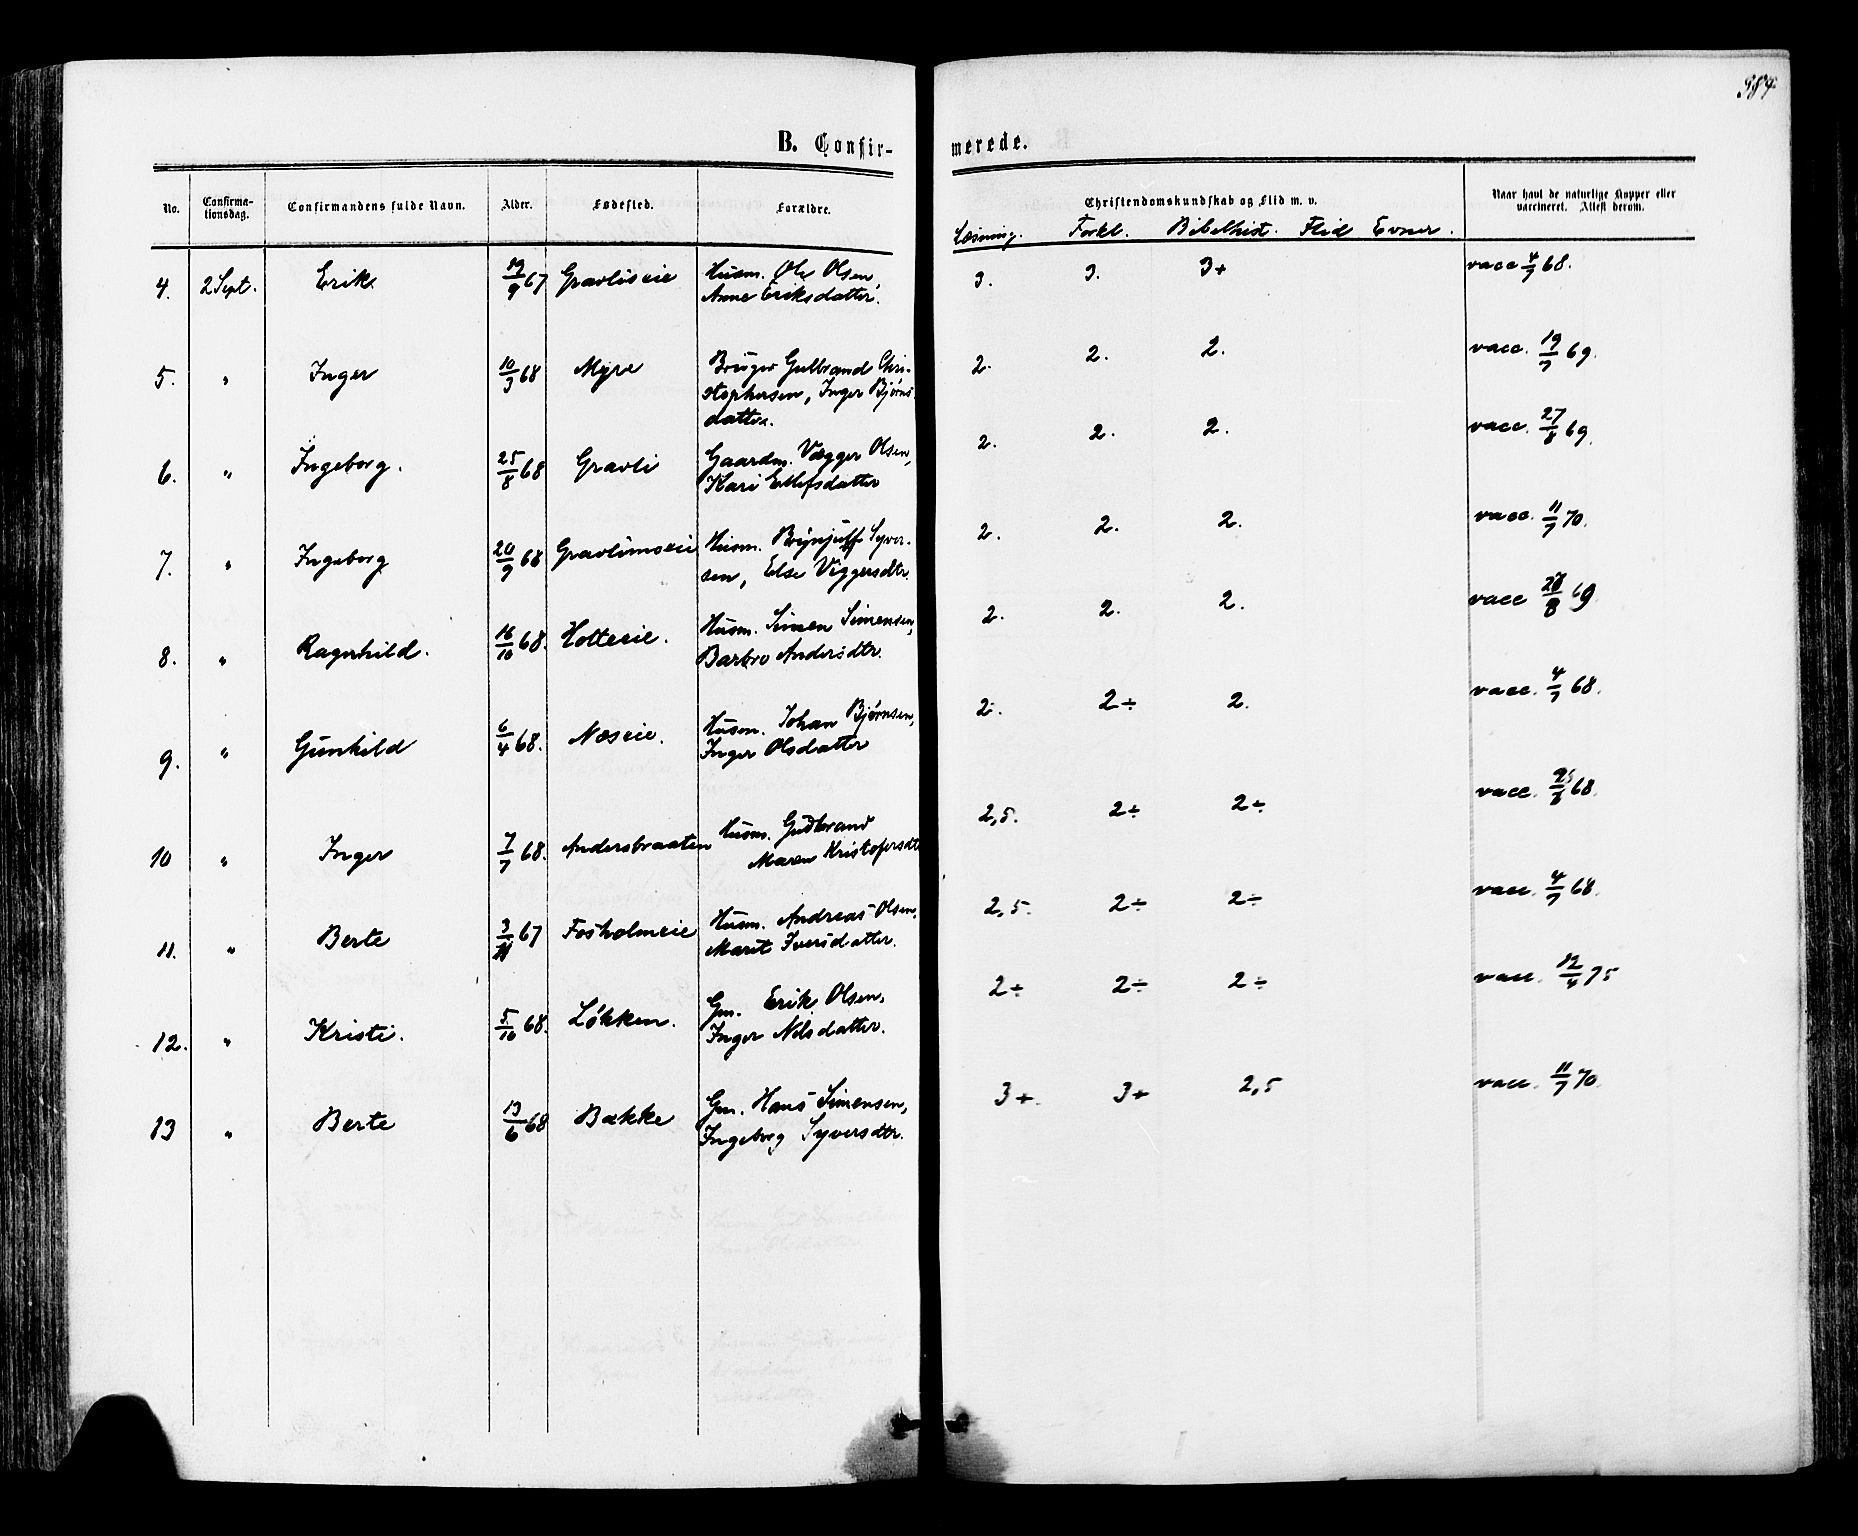 384
B. Confirmerede.
No. Confirmationsdag. Confirmandens fulde Navn. Alder. Fødested. Forældre. Christendomskundskab og Flid m. v. Naar havt de naturlige Kopper eller vaccineret. Attest derom.
Læsning. Forkl. Bibelhist. Flid Evner.
4. 2 Sept. Erik 19/9 67 Gravliseie Husm. Ole Olsen, 3. 3. 3+ vacc 4/7 68.
Anne Eriksdatter.
5. " Inger 10/3 68 Myre Bruger Gulbrand Chri- 2. 2. 2. vacc. 19/7 69.
stophersen, Inger Bjørns
datter.
6. " Ingeborg. 25/8 68 Gravli Gaardm. Vegger Olsen, 2. 2. 2. vacc. 27/8 69.
Kari Ellefsdatter
7. " Ingeborg 20/9 68 Gravlimseie Husm. Brynjulf Syver- 2. 2. 2. vacc. 11/7 70.
sen, Else Viggersdtr.
8. " Ragnhild. 16/10 68. Hotteeie. Husm. Simen Simensen, 2. 2. 2. vacc 28/8 69
Barbro Andersdtr.
9. " Gunhild 6/4 68. Næseie. Husm. Johan Bjørnsen, 2. 2÷ 2. vacc. 4/7 68.
Inger Olsdatter
10 " Inger 7/7 68. Andersbraaten Husm. Gudbrand 2,5. 2÷ 2÷ vacc. 25/8 68.
Maren Kristofersdt
11. " Berte 3/11 67 Fosholmeie Husm. Andreas Olsen, 2,5. 2÷ 2÷ vacc. 4/7 68.
Marit Iversdatter.
12. " Kristi. 5/10 68. Løkken. Gm. Erik Olsen, 2÷ 2÷ 2÷ vacc. 12/4 75
Inger Nilsdatter.
13 " Berte 13/6 68 Bække Gm. Hans Simensen, 3+. 3+ 2,5 vacc. 11/7 70.
Ingeborg Syversdtr.